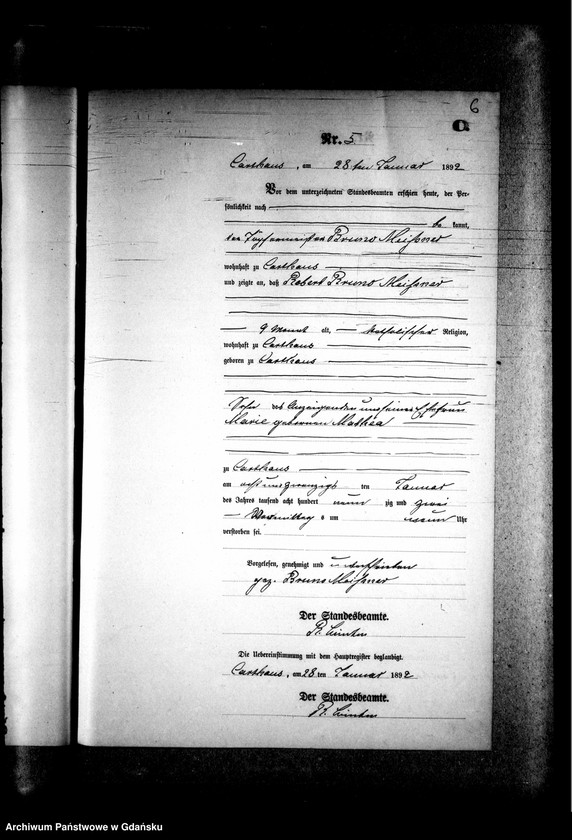 6
C.
Nr. 5
Carthaus, am 28ten Januar 1892
Vor dem unterzeichneten Standesbeamten erschien heute, der Per-
sönlichkeit nach
be kannt,
der Töpfermeister Bruno Meißner
wohnhaft zu Carthaus
und zeigte an, daß Robert Bruno Meißner
9 Monat alt, katholischer Religion,
wohnhaft zu Carthaus
geboren zu Carthaus
Sohn des Anzeigenden und seiner Ehefrau
Marie geborenen Mathea
zu Carthaus
am acht und zwanzigsten Januar
des Jahres tausend acht hundert neun zig und zwei
Vormittags um neun Uhr
verstorben sei.
Vorgelesen, genehmigt und unterschrieben
gez. Bruno Meißner
Der Standesbeamte.
Die Uebereinstimmung mit dem Hauptregister beglaubigt.
Carthaus, am 28 ten Januar 1892
Der Standesbeamte.
Archiwum Państwowe w Gdańsku